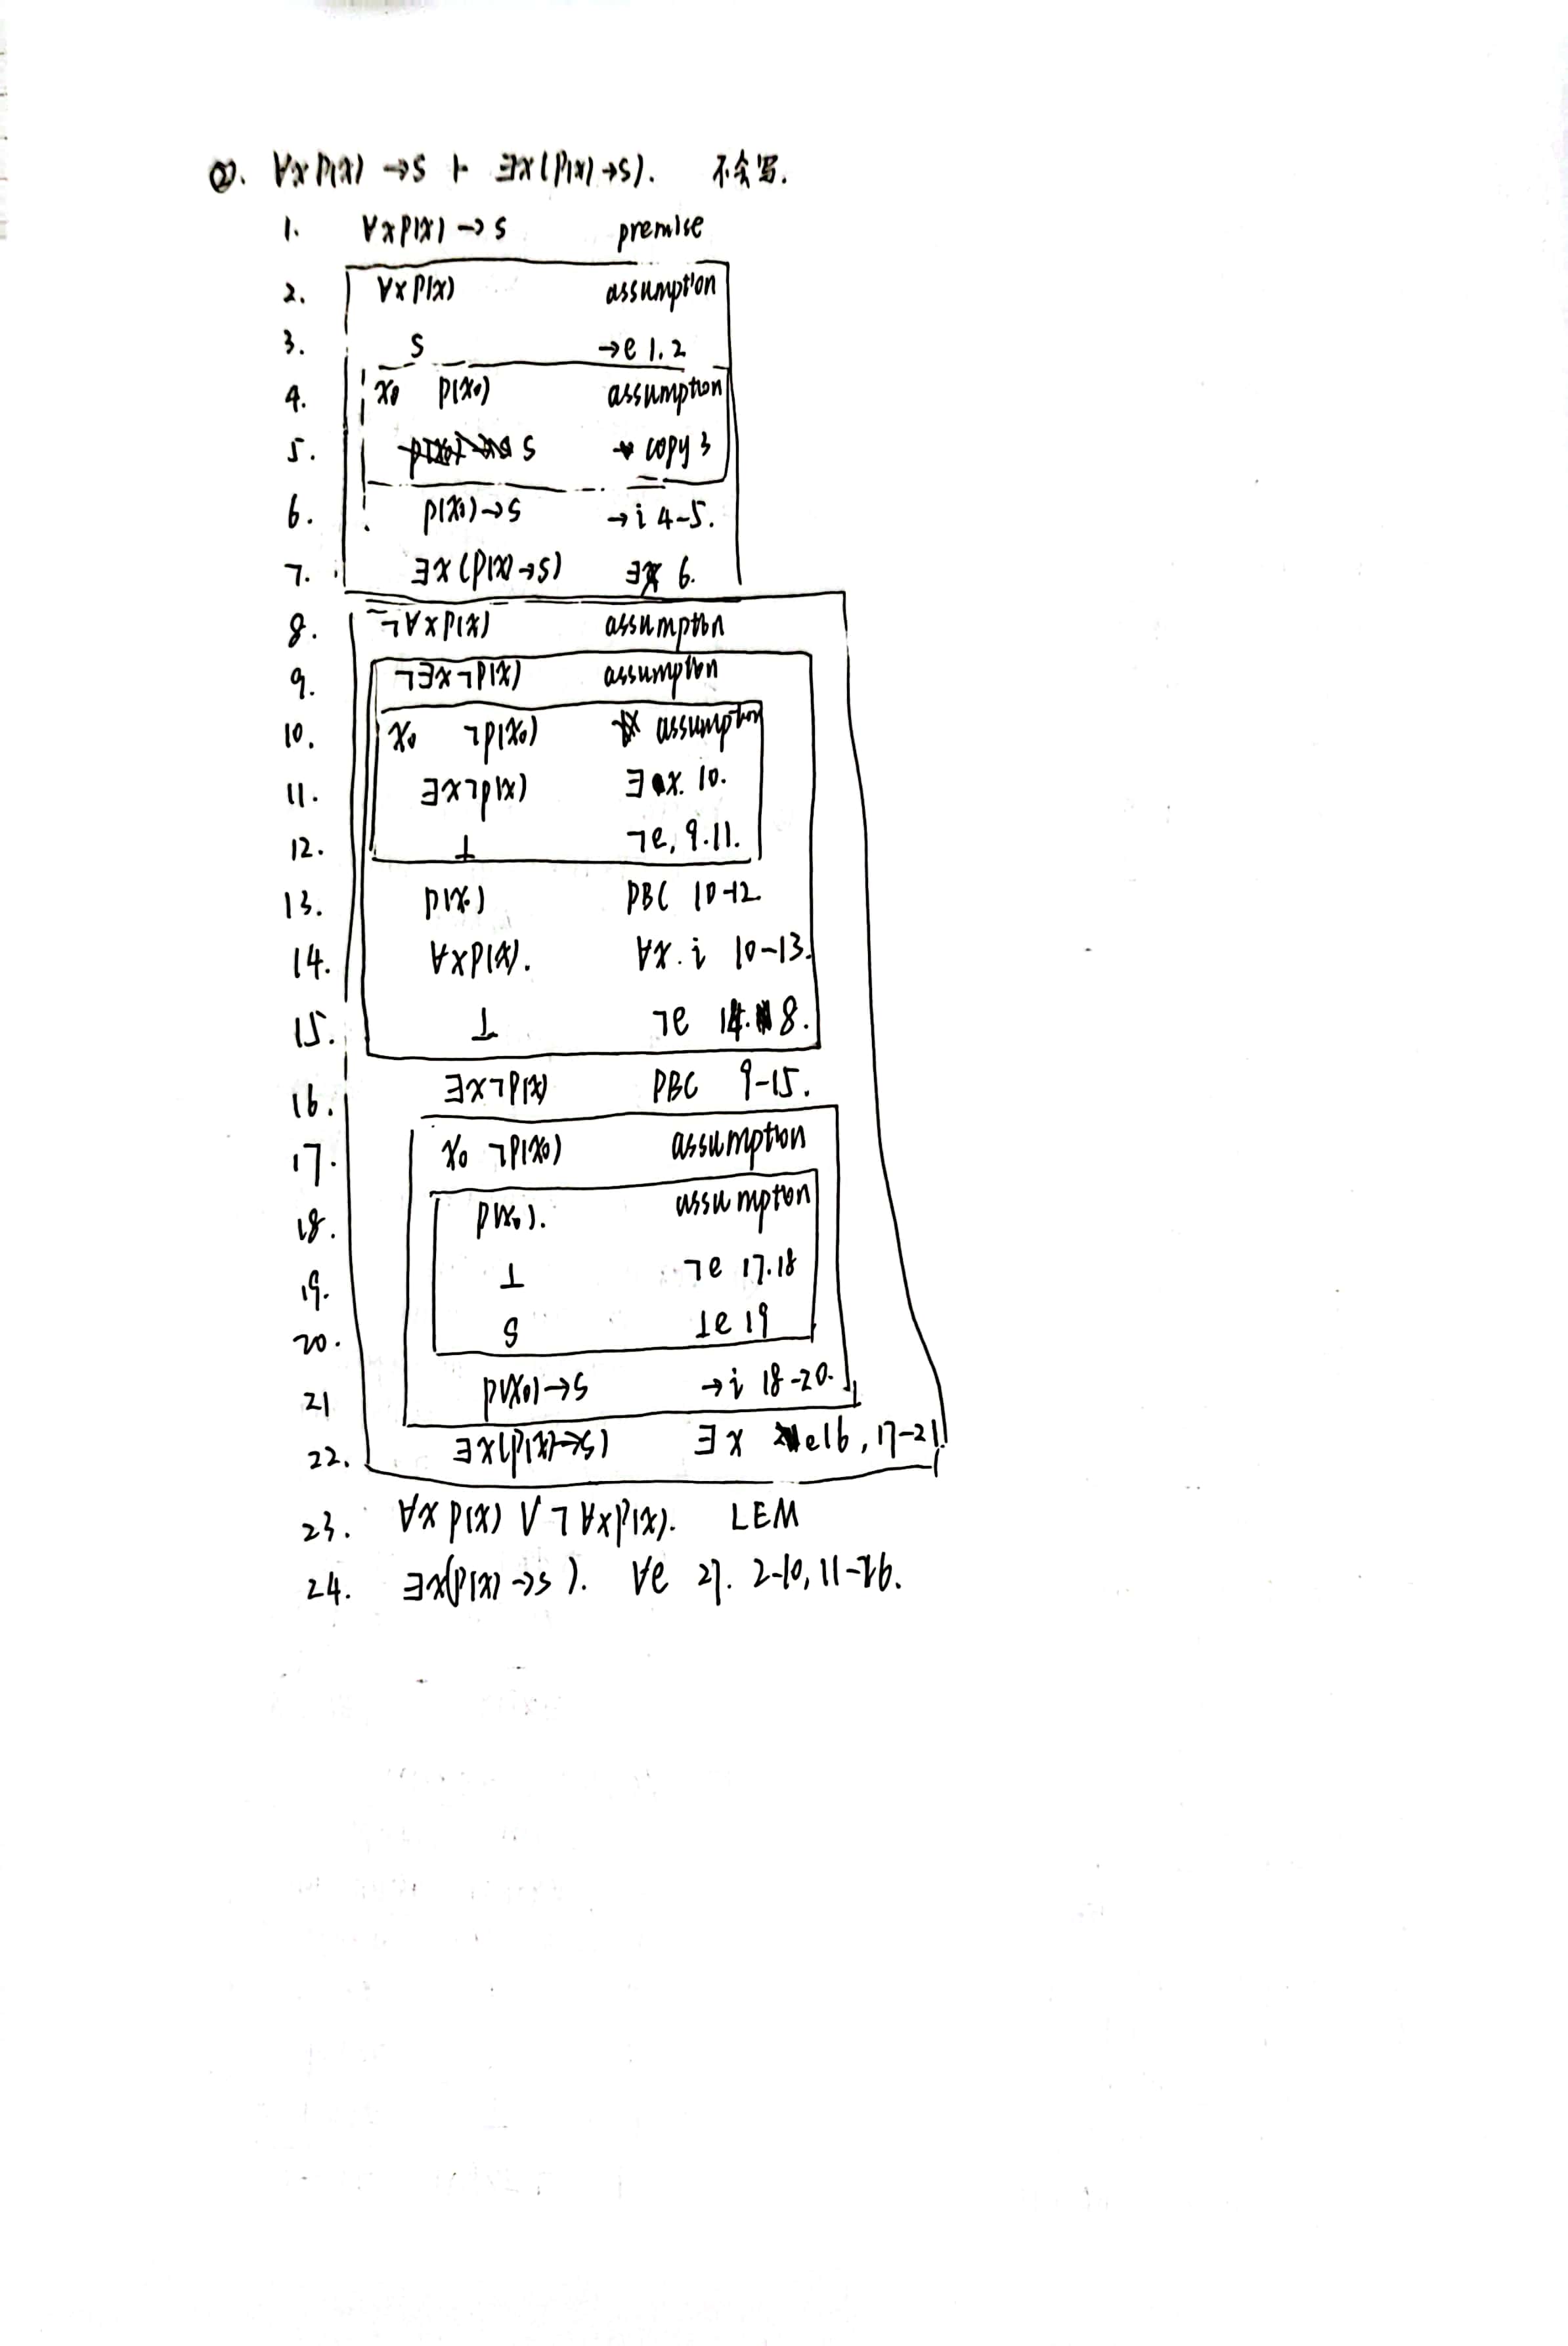 ②. ∀x P(x) → S ⊢ ∃x (P(x) → S). 不会写.
1. ∀x P(x) → S premise
2. ∀x P(x) assumption
3. S →e 1.2
4. x0 P(x0) assumption
5. S copy 3
6. P(x0) → S →i 4-5.
7. ∃x (P(x) → S) ∃x 6.
8. ¬∀x P(x) assumption
9. ¬∃x ¬P(x) assumption
10. x0 ¬P(x0) assumption
11. ∃x ¬P(x) ∃ x. 10.
12. ⊥ ¬e, 9.11.
13. P(x0) PBC 10-12.
14. ∀x P(x). ∀x. i 10-13.
15. ⊥ ¬e 14. 8.
16. ∃x ¬P(x) PBC 9-15.
17. x0 ¬P(x0) assumption
18. P(x0). assumption
19. ⊥ ¬e 17.18
20. S ⊥e 19
21 P(x0) → S →i 18-20.
22. ∃x (P(x) → S) ∃x e 16, 17-21.
23. ∀x P(x) ∨ ¬∀x P(x). LEM
24. ∃x (P(x) → S). ∨e 27. 2-10, 11-26.